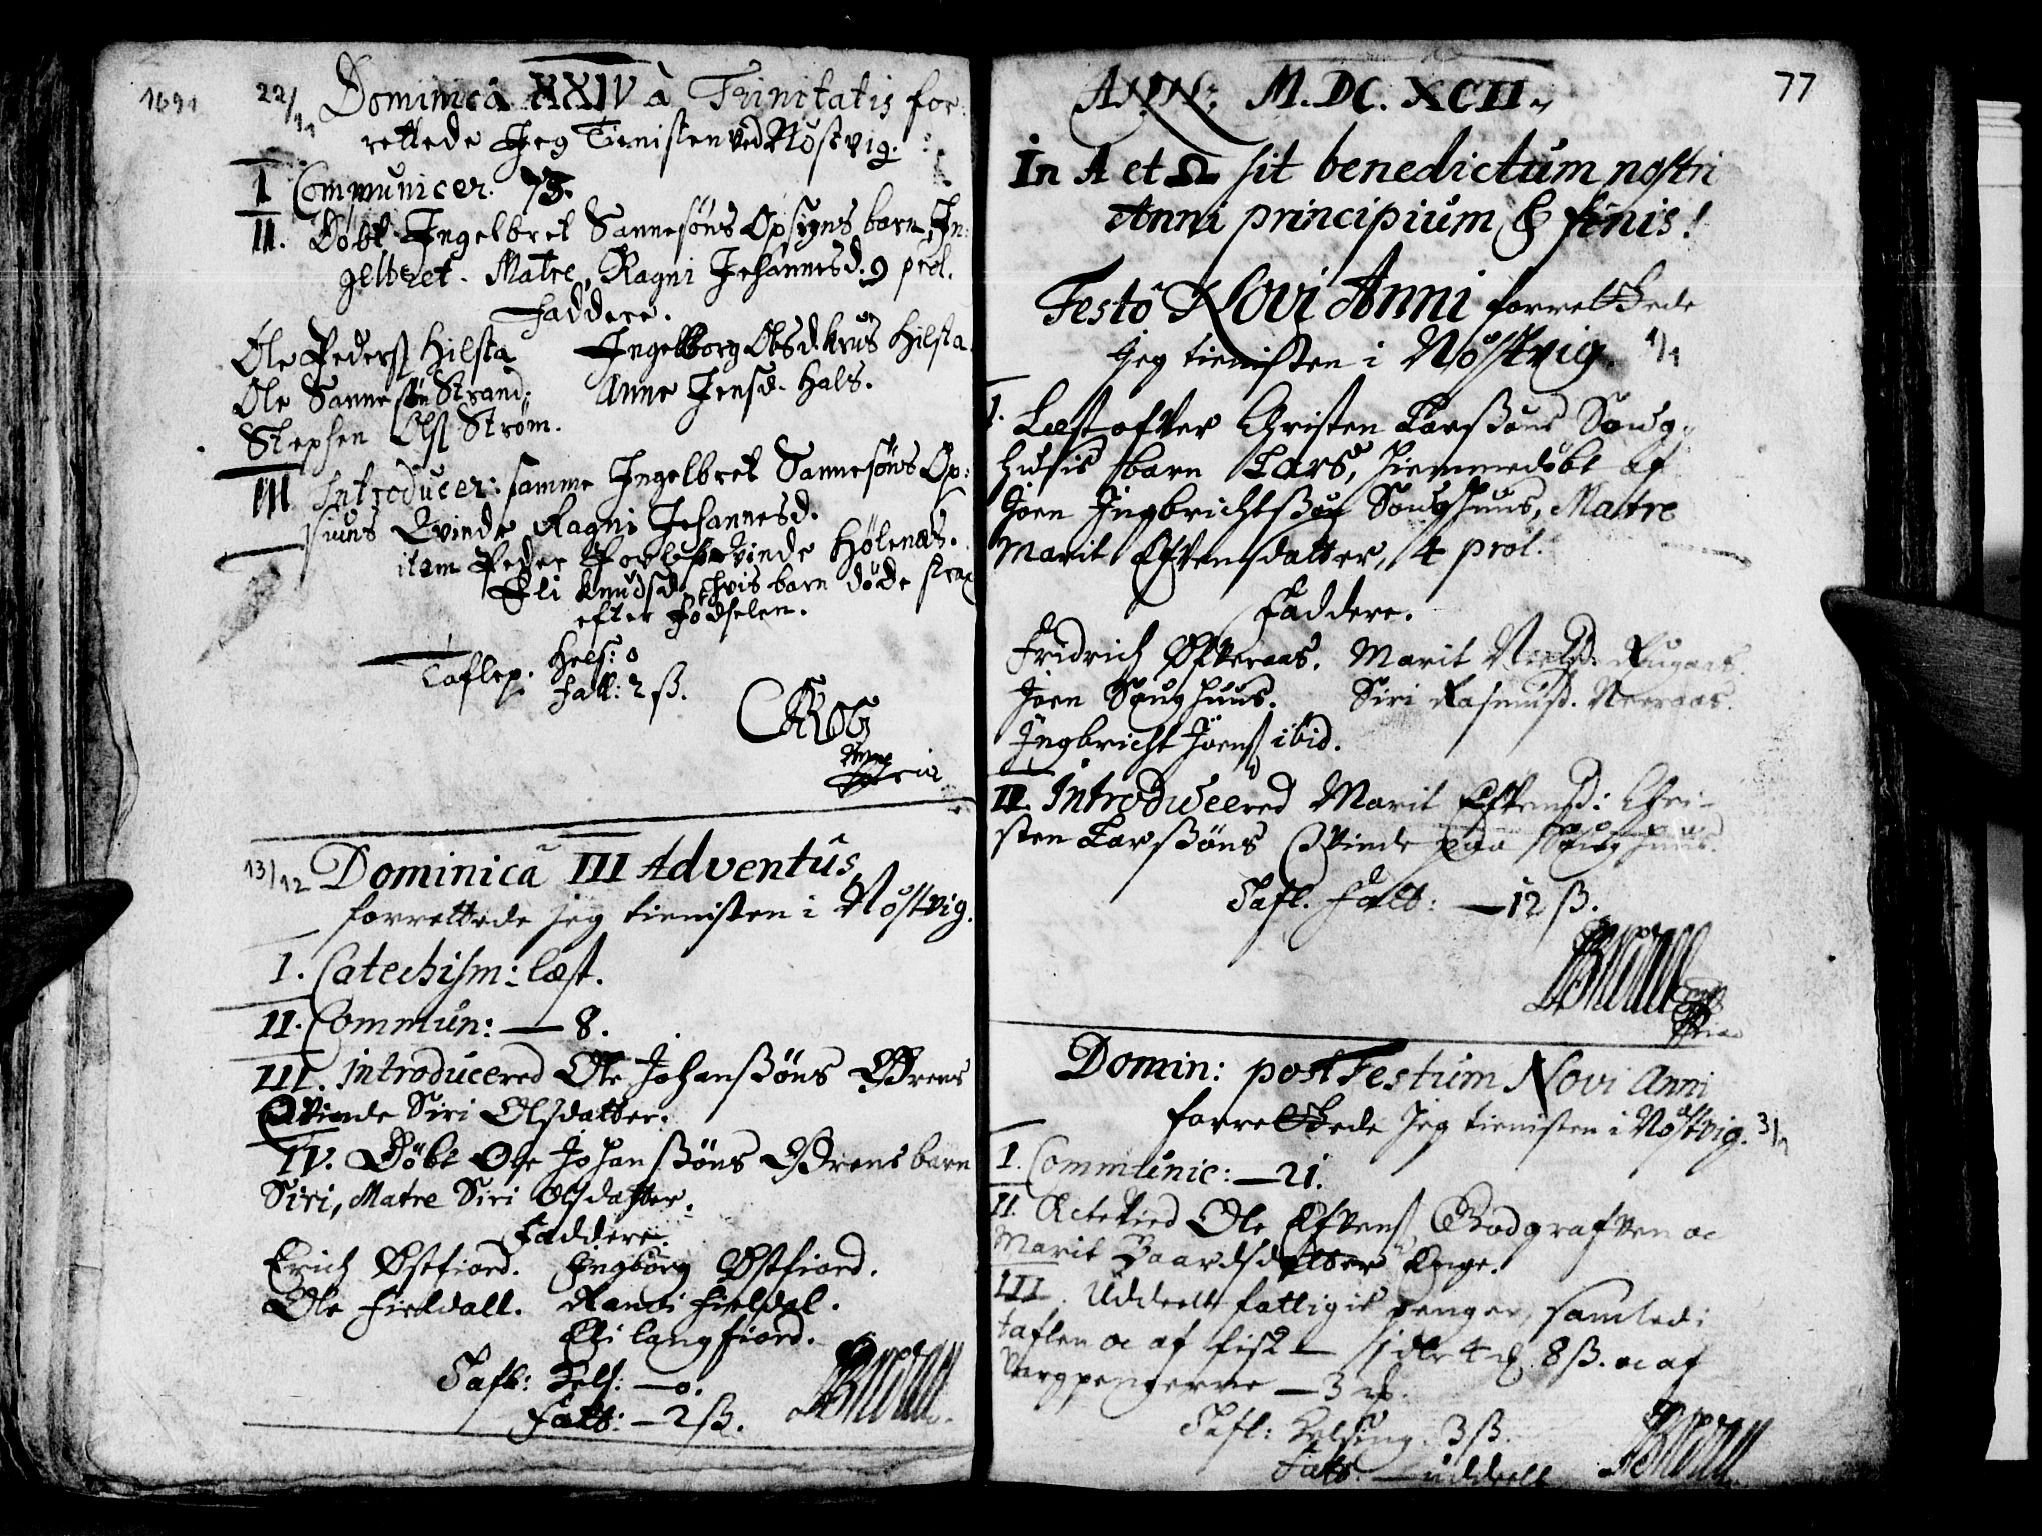 1691
22/11 Dominica XXIV à Trinitatis for:
rettede Jeg Tienisten ved Nøstvig.
I Communicer. 73.
II. Døbt Ingelbret Sannesøns Opsyns barn, In:
gelbret. Matre, Ragni Johannesd. 9 prol.
Faddere.
Ole Pederß Hilsta Ingelborg Olsd. Hilsta
Ole Sannesøn Strand: Anne Jensd. Hals.
Stephen Olß Strøm.
III Introducer: samme Ingelbret Sannesøns Op:
siuns Qvinde Ragni Johannesd.
item Peder qvinde Hølenæs.
Eli Knudsd. hvis barn døde strax
efter Fødselen.
Taflep. Hels: 0
Fatt: 2 ß.
13/12 Dominicâ III Adventûs,
forrettede jeg tienisten i Nøstvig.
I. Catechism: læst.
II. Commun: — 8.
III. Introducered Ole Johanßøns Ørens
Qvinde Siri Olsdatter.
IV. Døbt Ole Johanßøns Ørens barn
Siri, Matre Siri Olsdatter.
Faddere.
Erich Østfiord. Ingborg Østfiord.
Ole Fieldall. Randi Fieldal.
Eli Langfiord.
Tafl: Hels: — 0.
Fatt: — 2 ß.
77
Anno M.DC.XCII.
In A et Ω sit benedictum nostri
Anni principium & finis!
Festô Novi Anni forrettede
Jeg tienisten i Nøstvig. 1/1
I. Læst ofver Christen Larßøns Soug-
husis barn Lars, hiemmedøbt af
Joen Ingbrichtßøn Soughuus, Matre
Marit Efvensdatter, 4 prol.
Faddere.
Fridrich Øfveraas. Marit Nielsd.
Joen Soughuus. Siri Rasmusd. Neeraas.
Ingbricht Joenß ibid.
II. Introduceered Marit Efvensd: Chri-
sten Larßøns Qvinde paa Soughuus.
Tafl. Fatt: — 12 ß.
Domin: post Festum Novi Anni
forrettede Jeg tienisten i Nøstvig. 3/1
I. Communic: — 21.
II. Ole Efvenß Bodgrafven oc
Marit Baardsdatter
III. Uddeelt fattigis penger, samled i
taflen oc af fisk — 4 8 ß. oc af
— 3
Tafl: Helsing. 3 ß.
Fatt. — uddeelt